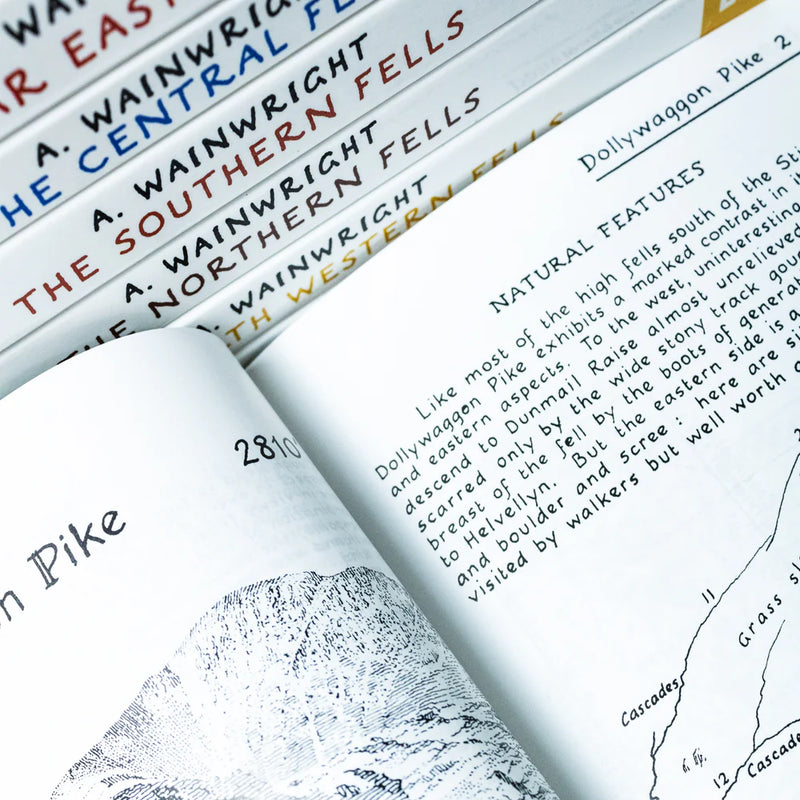 A. WAINWRIGHT
THE CENTRAL
A. WAINWRIGHT
THE SOUTHERN FELLS
A. WAINWRIGHT
THE NORTHERN FELLS
A. WAINWRIGHT
WESTERN FELLS
Pike
2810
Dollywaggon Pike 2
NATURAL FEATURES
Like most of the high fells south of the
Dollywaggon Pike exhibits a marked contrast in
and eastern aspects. To the west, uninteresting
descend to Dunmail Raise almost unrelieved
scarred only by the wide stony track
breast of the fell by the boots of
to Helvellyn. But the eastern side is a
and boulder and scree : here are
visited by walkers but well worth
11
Grass
Cascades
12
Cascades